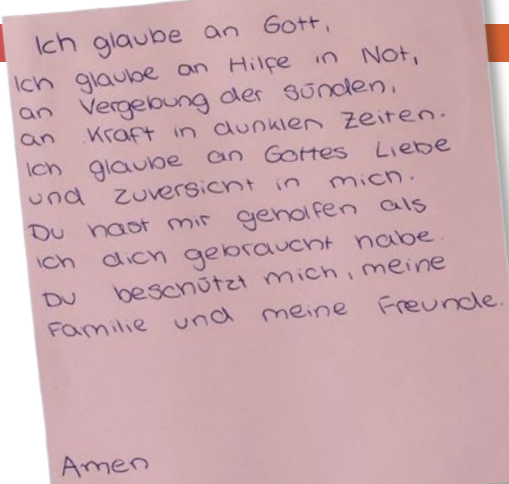 Ich glaube an Gott,
Ich glaube an Hilfe in Not,
an Vergebung der Sünden,
an Kraft in dunklen Zeiten.
Ich glaube an Gottes Liebe
und Zuversicht in mich.
Du hast mir geholfen als
ich dich gebraucht habe.
Du beschützt mich, meine
Familie und meine Freunde.
Amen